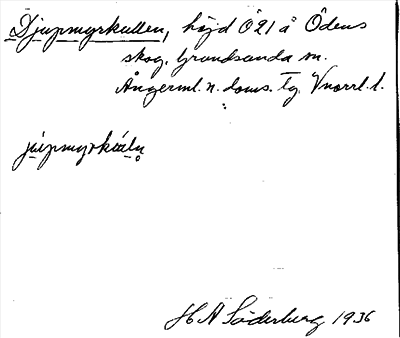 Djupmyrkullen, höjd Ö21 å Ödens
skog. Grundsunda sn.
Ångerml. n. doms. Tg. Vnorrl. l.
júpmyrkùln
H A Söderberg 1936